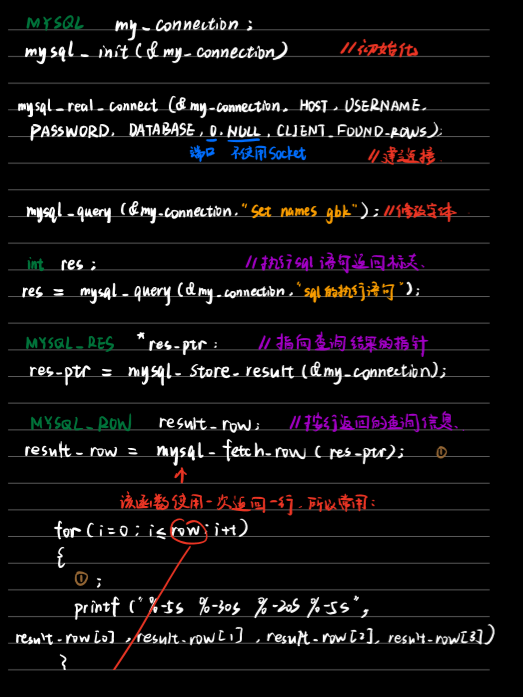 MYSQL my_connection;
mysql_init(&my_connection) //初始化
mysql_real_connect(&my_connection, HOST, USERNAME,
PASSWORD, DATABASE, 0, NULL, CLIENT_FOUND_ROWS);
端口 不使用Socket //建立连接
mysql_query(&my_connection, "set names gbk"); //修改字体
int res; //执行sql语句返回标志、
res = mysql_query(&my_connection, "sql的执行语句");
MYSQL_RES *res_ptr; //指向查询结果的指针
res_ptr = mysql_store_result(&my_connection);
MYSQL_ROW result_row; //按行返回的查询信息、
result_row = mysql_fetch_row(res_ptr); ①
该函数使用一次返回一行,所以常用:
for(i=0; i≤row; i++)
{
①;
printf("%-5s %-30s %-20s %-5s",
result_row[0], result_row[1], result_row[2], result_row[3])
}